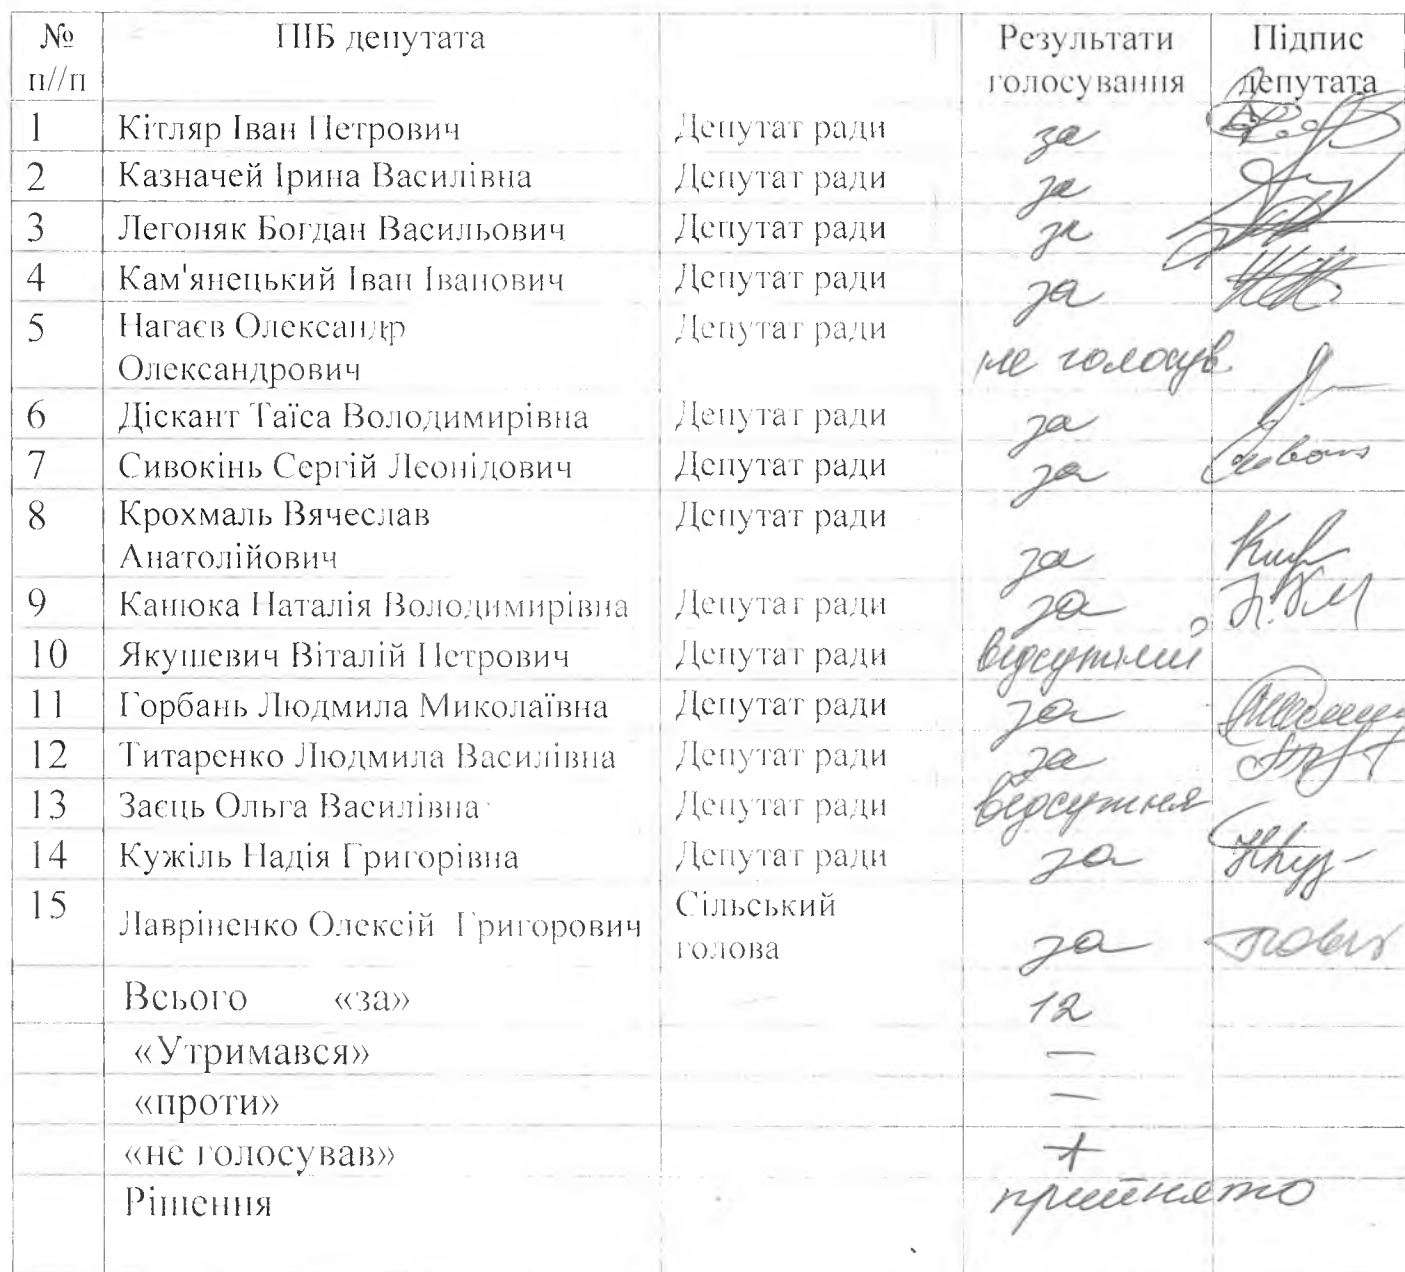 № ПІБ депутата Результати Підпис
п//п голосування депутата
1 Кітляр Іван Петрович Депутат ради за
2 Казначей Ірина Василівна Депутат ради за
3 Легоняк Богдан Васильович Депутат ради за
4 Кам'янецький Іван Іванович Депутат ради за
5 Нагаєв Олександр Депутат ради
Олександрович не голосув.
6 Діскант Таїса Володимирівна Депутат ради за
7 Сивокінь Сергій Леонідович Депутат ради за
8 Крохмаль Вячеслав Депутат ради
Анатолійович за
9 Канюка Наталія Володимирівна Депутат ради за
10 Якушевич Віталій Петрович Депутат ради відсутній
11 Горбань Людмила Миколаївна Депутат ради за
12 Титаренко Людмила Василівна Депутат ради за
13 Заєць Ольга Василівна Депутат ради відсутня
14 Кужіль Надія Григорівна Депутат ради за
15 Лавріненко Олексій Григорович Сільський
голова за
Всього «за» 12
«Утримався» —
«проти» —
«не голосував» +
Рішення прийнято